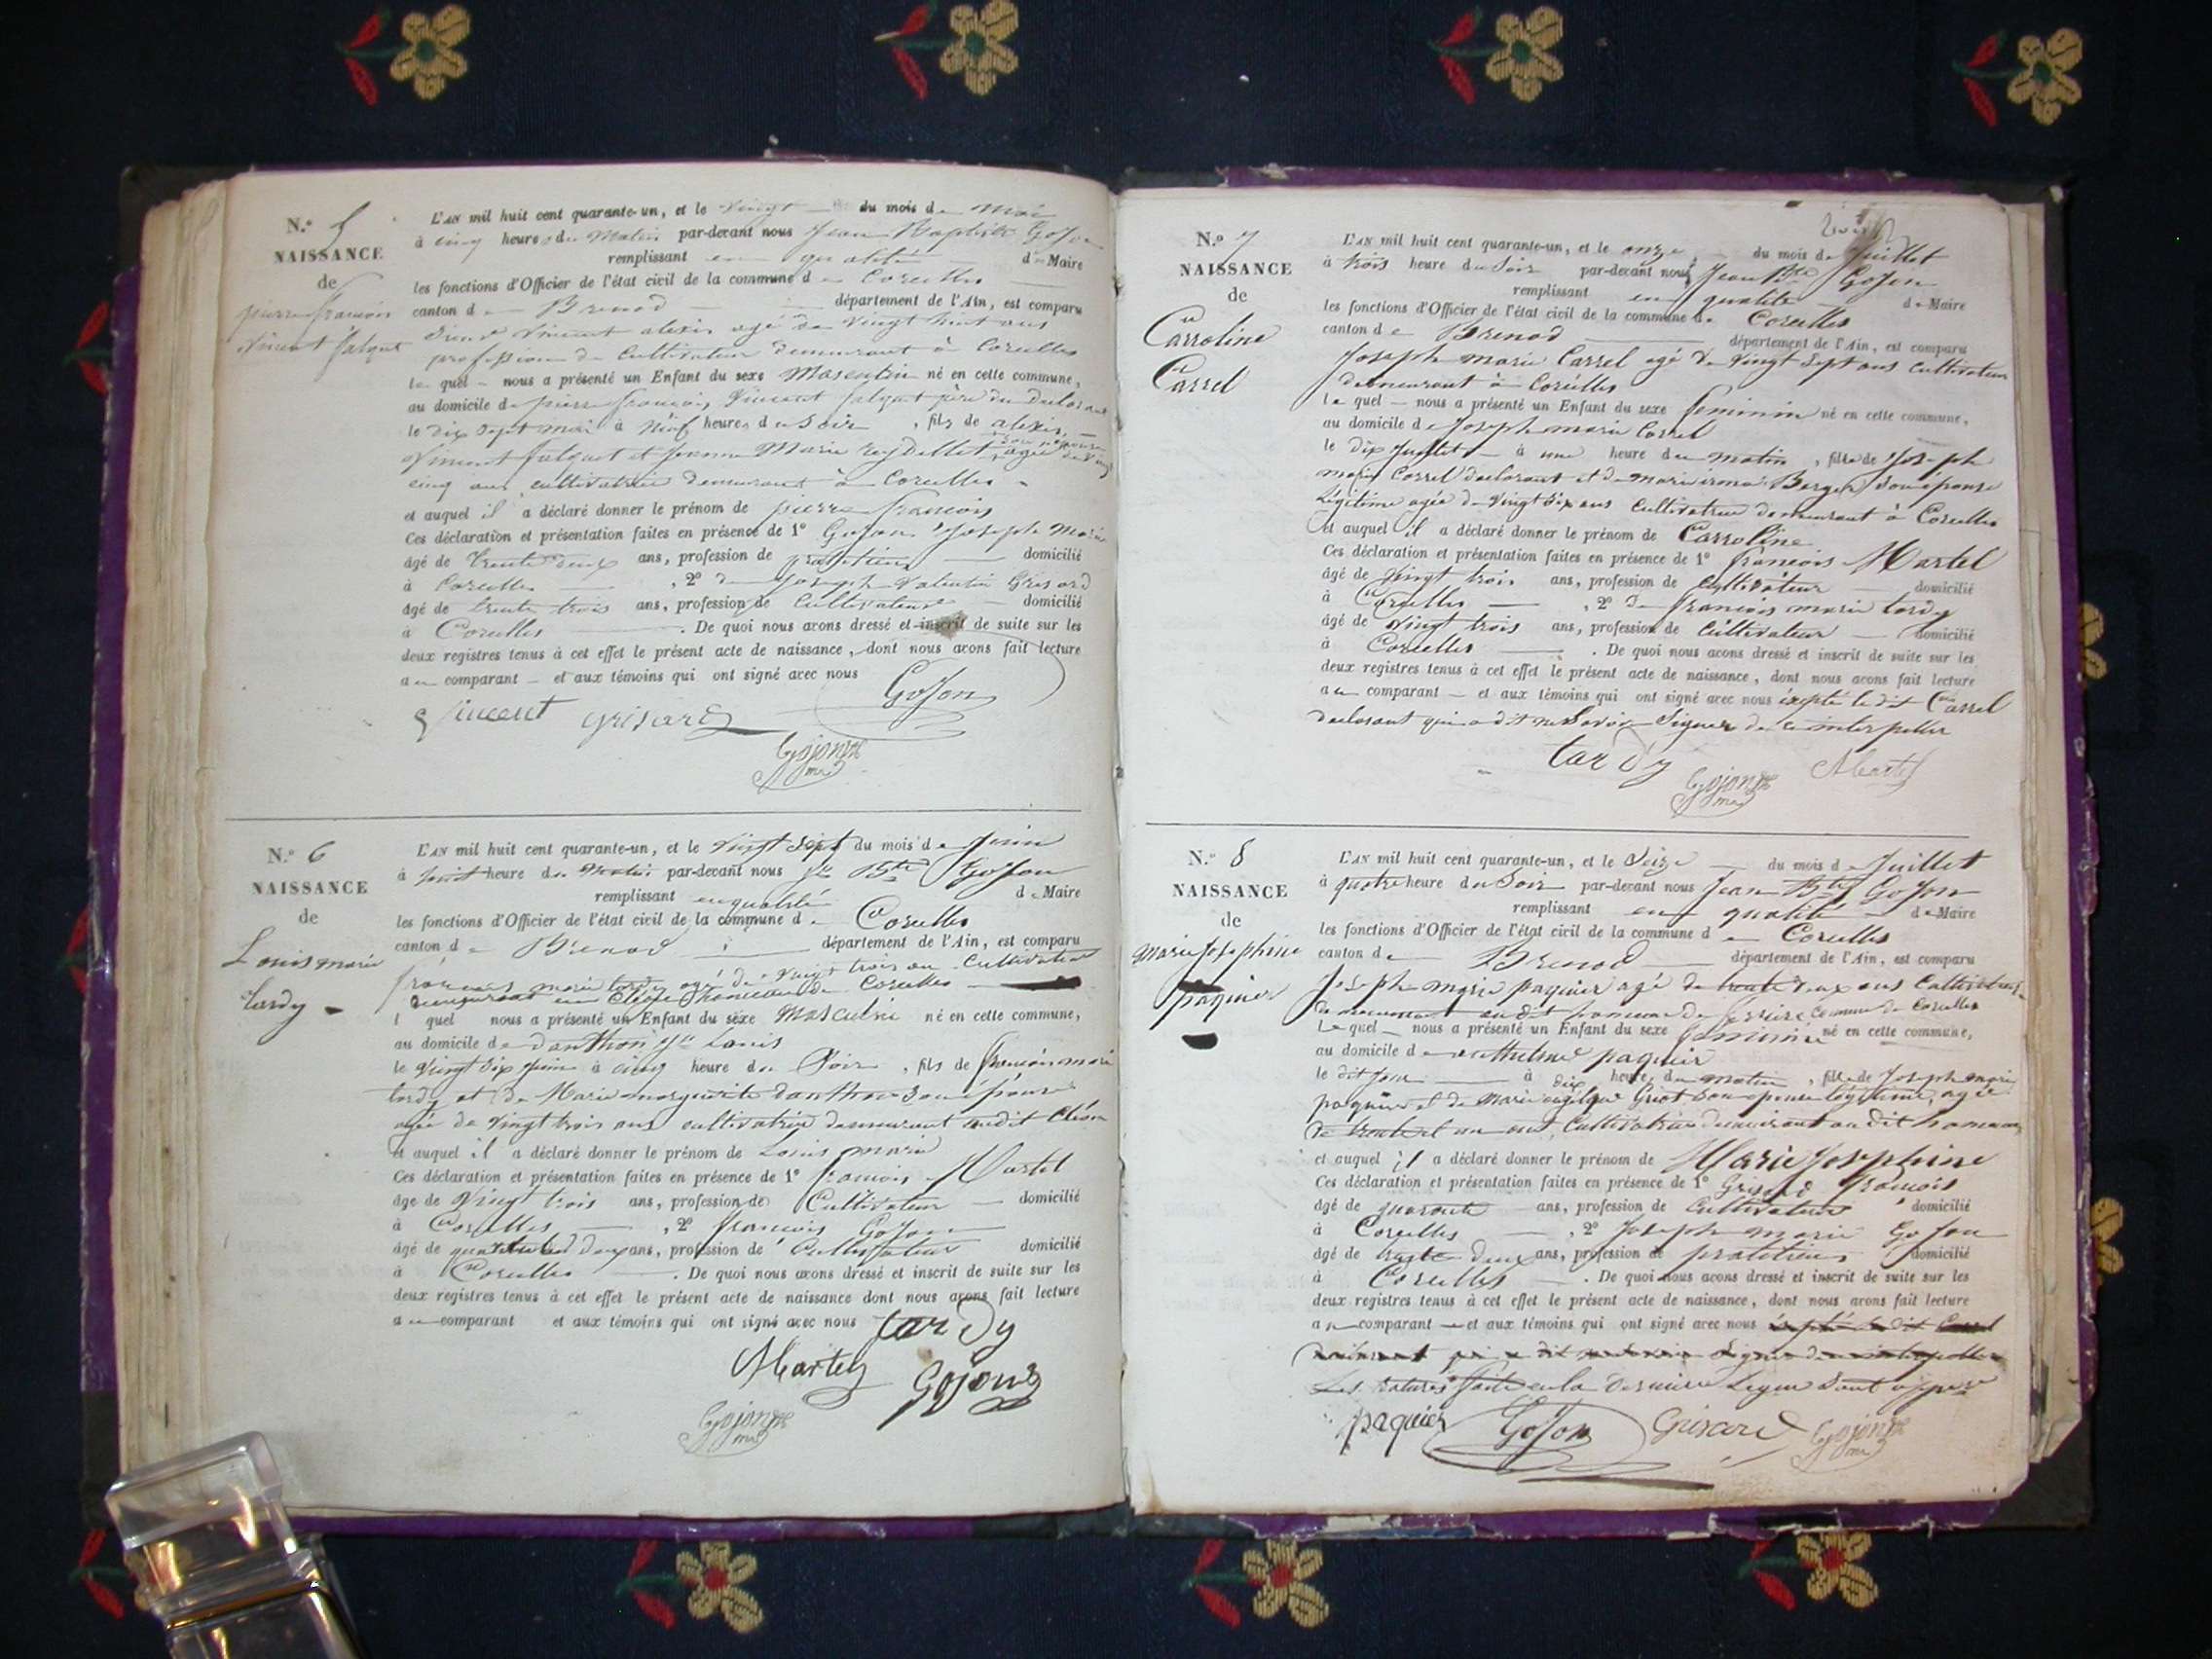 N.° 5
NAISSANCE
de
pierre francois
Vincent falquet
L'AN mil huit cent quarante-un, et le vingt du mois de mai
à cinq heures du Matin par-devant nous Jean Baptiste Gojon
remplissant en qualité de Maire
les fonctions d'Officier de l'état civil de la commune de Corcelles
canton de Brenod département de l'Ain, est comparu
Vincent alexis agé de vingt huit ans
profession de Cultivateur demeurant à Corcelles
le quel nous a présenté un Enfant du sexe Masculin né en cette commune,
au domicile de pierre francois Vincent falquet père du declarant
le dix sept mai à Neuf heures du Soir, fils de alexis
Vincent falquet et Jeanne Marie reydellet son épouse agée de vingt
cinq ans cultivatrice demeurant à Corcelles
et auquel il a déclaré donner le prénom de pierre francois
Ces déclaration et présentation faites en présence de 1° Gojon Joseph Marie
âgé de trente deux ans, profession de praticien domicilié
à Corcelles, 2° de Joseph Valentin Grisard
âgé de trente trois ans, profession de Cultivateur domicilié
à Corcelles. De quoi nous avons dressé et inscrit de suite sur les
deux registres tenus à cet effet le présent acte de naissance, dont nous avons fait lecture
au comparant et aux témoins qui ont signé avec nous
Gojon
Vincent grisard
Gojon
N.° 6
NAISSANCE
de
Louis marie
tardy
L'AN mil huit cent quarante-un, et le vingt sept du mois de Juin
à huit heure du Matin par-devant nous Jn Bte Gojon
remplissant en qualité de Maire
les fonctions d'Officier de l'état civil de la commune de Corcelles
canton de Brenod département de l'Ain, est comparu
francois marie tardy agé de vingt trois an Cultivateur
demeurant au hameau de Corcelles
l quel nous a présenté un Enfant du sexe Masculin né en cette commune,
au domicile de danthon Jn Louis
le vingt six juin à cinq heure du Soir, fils de francois marie
tardy et de Marie marguerite danthon son épouse
agée de vingt trois ans cultivatrice demeurant audit
et auquel il a déclaré donner le prénom de Louis marie
Ces déclaration et présentation faites en présence de 1° francois Martel
âgé de Vingt trois ans, profession de Cultivateur domicilié
à Corcelles, 2° francois Gojon
âgé de deux ans, profession de Cultivateur domicilié
à Corcelles. De quoi nous avons dressé et inscrit de suite sur les
deux registres tenus à cet effet le présent acte de naissance dont nous avons fait lecture
au comparant et aux témoins qui ont signé avec nous tardy
Martel Gojon
Gojon
N.° 7
NAISSANCE
de
Carroline
Carrel
L'AN mil huit cent quarante-un, et le onze du mois de Juillet
à trois heure du Soir par-devant nous Jean Bte Gojon
remplissant en qualité de Maire
les fonctions d'Officier de l'état civil de la commune de Corcelles
canton de Brenod département de l'Ain, est comparu
Joseph marie Carrel agé de vingt sept ans Cultivateur
demeurant à Corcelles
le quel nous a présenté un Enfant du sexe feminin né en cette commune,
au domicile de Joseph marie Carrel
le dix Juillet à une heure du matin, fille de Joseph
marie Carrel declarant et de marie Berger Son epouse
Légitime agée de vingt six ans Cultivatrice demeurant à Corcelles
et auquel il a déclaré donner le prénom de Carroline
Ces déclaration et présentation faites en présence de 1° francois Martel
âgé de vingt trois ans, profession de Cultivateur domicilié
à Corcelles, 2° de francois marie tardy
âgé de vingt trois ans, profession de Cultivateur domicilié
à Corcelles. De quoi nous avons dressé et inscrit de suite sur les
deux registres tenus à cet effet le présent acte de naissance, dont nous avons fait lecture
au comparant et aux témoins qui ont signé avec nous excepté le dit Carrel
declarant qui a dit ne Savoir Signer de ce interpeller
tardy Martel
Gojon
N.° 8
NAISSANCE
de
Marie Josephine
paquier
L'AN mil huit cent quarante-un, et le Seize du mois de Juillet
à quatre heure du Soir par-devant nous Jean Bte Gojon
remplissant en qualité de Maire
les fonctions d'Officier de l'état civil de la commune de Corcelles
canton de Brenod département de l'Ain, est comparu
Joseph marie paquier agé de trente deux ans Cultivateur
demeurant au dit hameau de commune de Corcelles
Le quel nous a présenté un Enfant du sexe feminin né en cette commune,
au domicile de paquier
le dit jour à dix heure du matin, fille de Joseph marie
paquier et de Marie angelique Son epouse légitime, agée
de trente et un ans, Cultivatrice demeurant au dit hameau
et auquel il a déclaré donner le prénom de Marie Josephine
Ces déclaration et présentation faites en présence de 1° Grisard francois
âgé de quarante ans, profession de Cultivateur domicilié
à Corcelles, 2° Joseph marie Gojon
âgé de trente deux ans, profession de praticien domicilié
à Corcelles. De quoi nous avons dressé et inscrit de suite sur les
deux registres tenus à cet effet le présent acte de naissance, dont nous avons fait lecture
au comparant et aux témoins qui ont signé avec nous excepté le dit Carrel
declarant qui a dit ne Savoir Signer de ce interpeller
Les ratures faite en la Derniere Ligne Sont
paquier Gojon Grisard Gojon